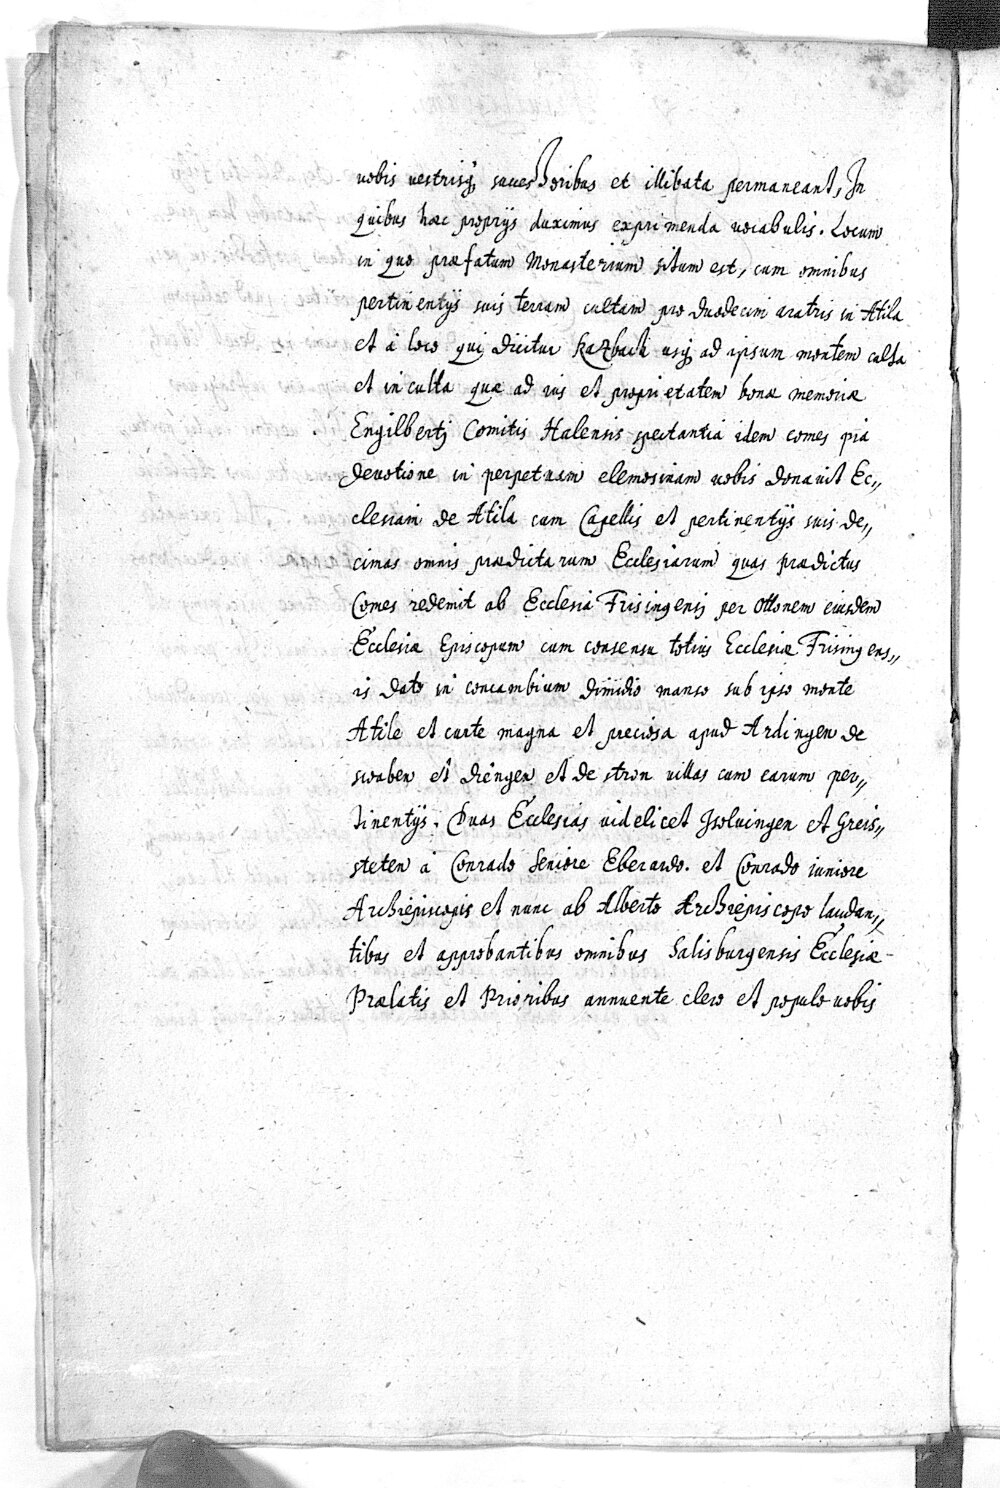 vobis vestrisq; successoribus et illibata permaneant, In
quibus hæc proprijs duximus exprimenda vocabulis. Locum
in quo præfatum Monasterium situm est, cum omnibus
pertinentijs suis terram cultam pro duodecim aratris in Atila
et à loco qui dicitur Kazbach usq; ad ipsum montem culta
et inculta quæ ad ius et proprietatem bonæ memoriæ
Engilbertj Comitis Halensis spectantia idem comes pia
devotione in perpetuam elemosinam vobis donavit Ec„
clesiam de Atila cum Capellis et pertinentijs suis de„
cimas omnis prædictarum Ecclesiarum quas prædictus
Comes redemit ab Ecclesia Frisingensj per Ottonem eiusdem
Ecclesiæ Episcopum cum consensu totius Ecclesiæ Frisingens„
is dato in concambium dimidio manso sub ipso monte
Atile et curte magna et preciosa apud Ardingen de
swaben et diengen et de stron villas cum earum per„
tinentijs. Duas Ecclesias videlicet Jsoluingen et Greis„
steten à Conrado Seniore Eberardo. et Conrado iuniore
Archiepiscopis et nunc ab Alberto Archiepiscopo laudan„
tibus et approbantibus omnibus Salisburgensis Ecclesiæ
Prælatis et Prioribus annuente clero et populo vobis